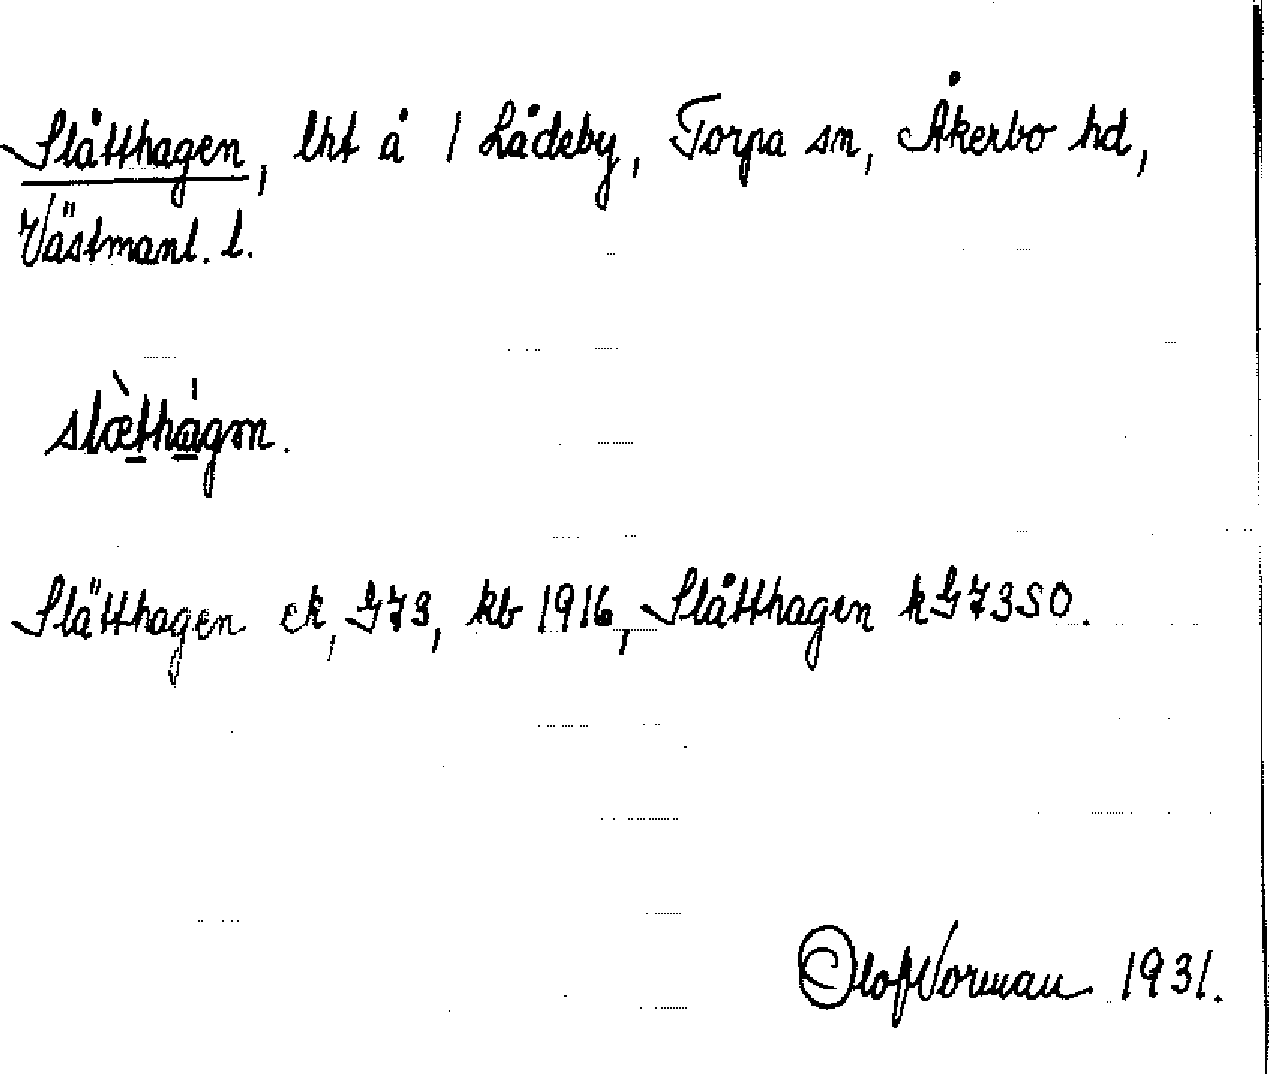 Slåtthagen, lht å 1 Lådeby, Torpa sn, Åkerbo hd,
Västmanl. l.
slæ̀thágən.
Slätthagen ek, G73, kb 1916, Slåtthagen kG73SO.
Olof Norman 1931.